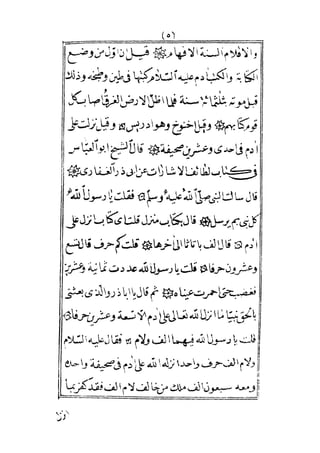 (٥)
والاقلام السنة الافهام ۞ قيل ان اول من وضع
الكتابة والكتب ادم عليه السلام كتبها فى طين وطبخه وذلك
قبل موته بثلثمائة سنة فلما اظل الارض الغرق اصاب كل
قوم كتابهم ۞ وقيل اخنوخ وهو ادريس ۞ وقيل نزلت على
ادم فى احدى وعشرين صحيفة ۞ قال الشيخ ابو العباس
فى كتاب لطائف الاشارات عزا الى ذر الغفارى ۞
قال سالت النبى صلى الله عليه وسلم ۞ فقلت يا رسول الله
كل نبى بم يرسل ۞ قال بكتاب منزل قلت اى كتاب انزل على
ادم ۞ قال الف با تا ثا الى اخرها ۞ قلت كم حرف قال تسع
وعشرون حرفا ۞ قلت يا رسول الله عددت ثمانية وعشرين
فغضب حتى احمرت عيناه ۞ ثم قال يا ابا ذر والذى بعثنى
بالحق نبيا ما انزل الله تعالى على ادم الا تسعة وعشرين حرفا ۞
قلت يا رسول الله فيهما الف ولام ۞ فقال عليه السلام
ولام الف حرف واحد انزله الله على ادم فى صحيفة واحدة
ومعه سبعون الف ملك من خالف لام الف فقد كفر بما